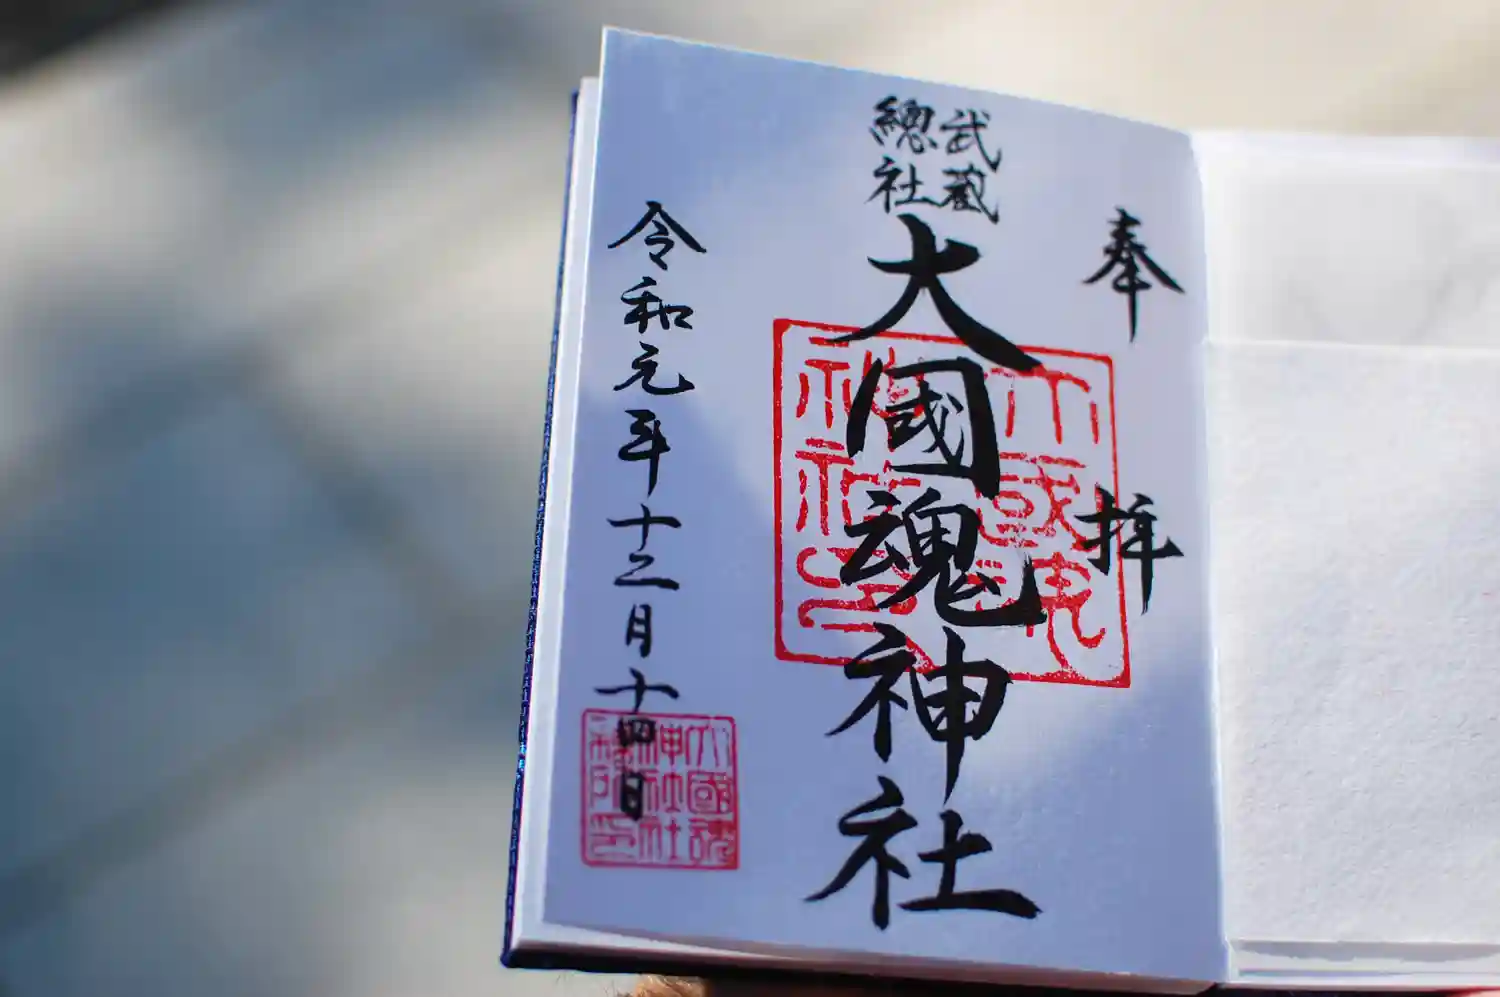 奉拝
武蔵
總社
大國魂神社
令和元年十二月十四日
大國魂
神社社
務所印